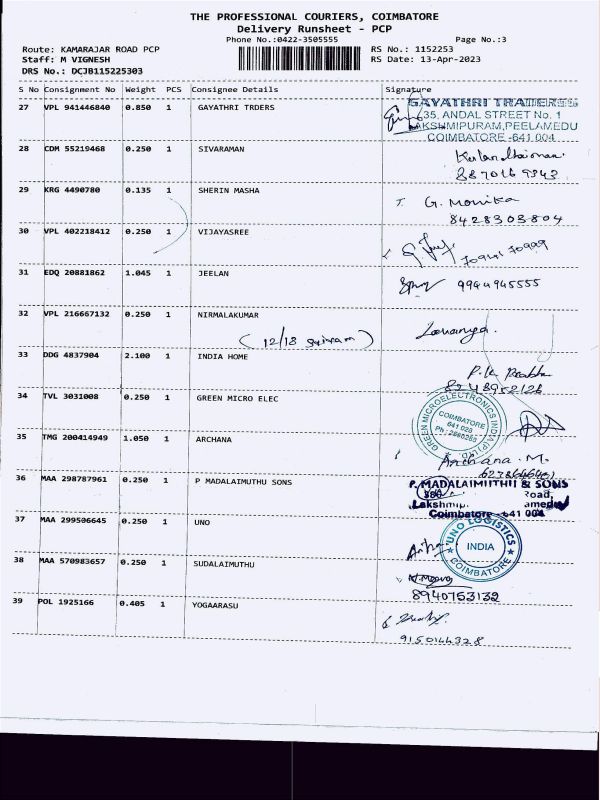 THE PROFESSIONAL COURIERS, COIMBATORE
Delivery Runsheet - PCP
Phone No.:0422-3505555 Page No.:3
Route: KAMARAJAR ROAD PCP RS No.: 1152253
Staff: M VIGNESH RS Date: 13-Apr-2023
DRS No.: DCJB115225303
S No Consignment No Weight PCS Consignee Details Signature
27 VPL 941446840 0.850 1 GAYATHRI TRDERS
GAYATHRI TRADERS
35, ANDAL STREET No. 1
LAKSHMIPURAM,PEELAMEDU
COIMBATORE -641 004
28 CDM 55219468 0.250 1 SIVARAMAN
29 KRG 4490780 0.135 1 SHERIN MASHA
G. Monika
8428303804
30 VPL 402218412 0.250 1 VIJAYASREE
31 EDQ 20881862 1.045 1 JEELAN
9944945555
32 VPL 216667132 0.250 1 NIRMALAKUMAR
(12/18 Sriram)
33 DDG 4837904 2.100 1 INDIA HOME
34 TVL 3031008 0.250 1 GREEN MICRO ELEC
GREEN MICROELECTRONICS INDIA (P) LTD
COIMBATORE
641 028
35 TMG 200414949 1.050 1 ARCHANA
Archana. M.
36 MAA 298787961 0.250 1 P MADALAIMUTHU SONS
P. MADALAIMUTHU & SONS
Road,
Coimbatore - 641 004
37 MAA 299506645 0.250 1 UNO
UNO LOGISTICS
INDIA
COIMBATORE
38 MAA 570983657 0.250 1 SUDALAIMUTHU
8940753132
39 POL 1925166 0.405 1 YOGAARASU
9150144328